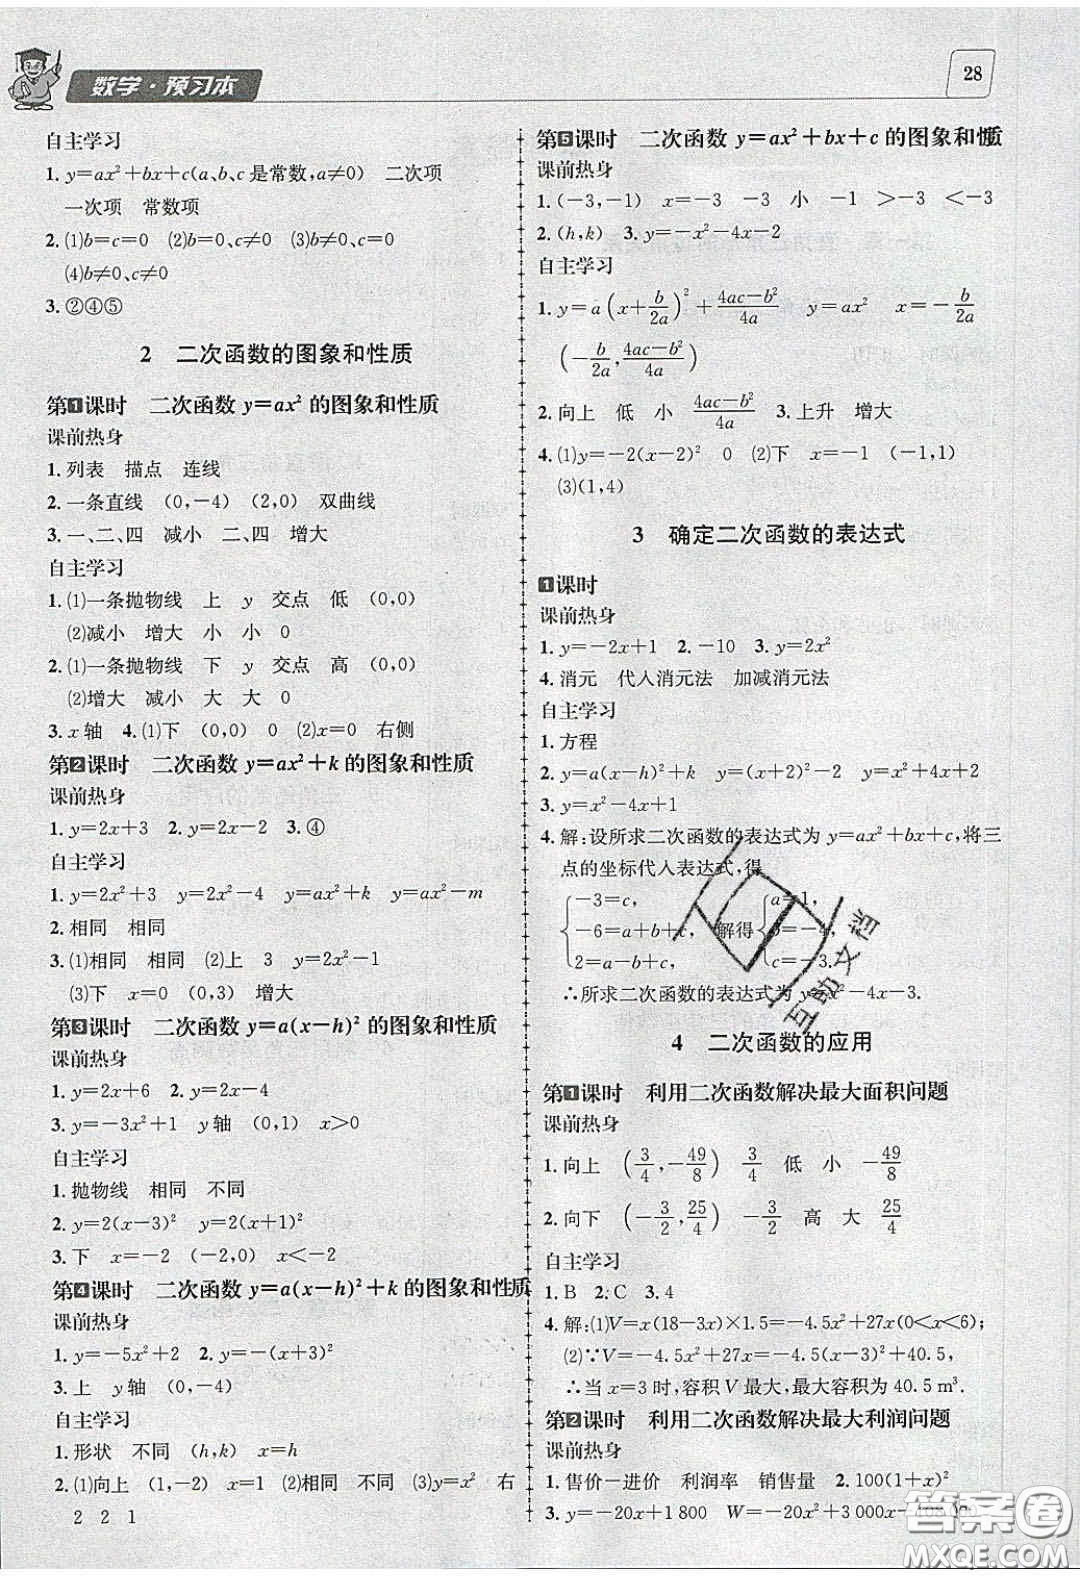 数学·预习本
28
自主学习
1. y=ax²+bx+c(a、b、c 是常数,a≠0) 二次项
一次项 常数项
2. (1)b=c=0 (2)b=0、c≠0 (3)b≠0、c=0
(4)b≠0、c≠0
3. ②④⑤
2 二次函数的图象和性质
第1课时 二次函数 y=ax² 的图象和性质
课前热身
1. 列表 描点 连线
2. 一条直线 (0,-4) (2,0) 双曲线
3. 一、二、四 减小 二、四 增大
自主学习
1. (1)一条抛物线 上 y 交点 低 (0,0)
(2)减小 增大 小 小 0
2. (1)一条抛物线 下 y 交点 高 (0,0)
(2)增大 减小 大 大 0
3. x 轴 4. (1)下 (0,0) 0 (2)x=0 右侧
第2课时 二次函数 y=ax²+k 的图象和性质
课前热身
1. y=2x+3 2. y=2x-2 3. ④
自主学习
1. y=2x²+3 y=2x²-4 y=ax²+k y=ax²-m
2. 相同 相同
3. (1)相同 相同 (2)上 3 y=2x²-1
(3)下 x=0 (0,3) 增大
第3课时 二次函数 y=a(x-h)² 的图象和性质
课前热身
1. y=2x+6 2. y=2x-4
3. y=-3x²+1 y轴 (0,1) x>0
自主学习
1. 抛物线 相同 不同
2. y=2(x-3)² y=2(x+1)²
3. 下 x=-2 (-2,0) x<-2
第4课时 二次函数 y=a(x-h)²+k 的图象和性质
课前热身
1. y=-5x²+2 2. y=-(x+3)²
3. 上 y轴 (0,-4)
自主学习
1. 形状 不同 (h,k) x=h
2. (1)向上 (1,-2) x=1 (2)相同 不同 (3)y=x² 右
2 2 1
第5课时 二次函数 y=ax²+bx+c 的图象和性质
课前热身
1. (-3,-1) x=-3 -3 小 -1 >-3 <-3
2. (h,k) 3. y=-x²-4x-2
自主学习
1. y=a(x+b/2a)²+(4ac-b²)/4a y=ax² x=-b/2a
(-b/2a,(4ac-b²)/4a)
2. 向上 低 小 (4ac-b²)/4a 3. 上升 增大
4. (1)y=-2(x-2)² 0 (2)下 x=-1 (-1,1)
(3)(1,4)
3 确定二次函数的表达式
1课时
课前热身
1. y=-2x+1 2. -10 3. y=2x²
4. 消元 代入消元法 加减消元法
自主学习
1. 方程
2. y=a(x-h)²+k y=(x+2)²-2 y=x²+4x+2
3. y=x²-4x+1
4. 解:设所求二次函数的表达式为 y=ax²+bx+c,将三
点的坐标代入表达式,得
{-3=c, {a=1,
-6=a+b+c, 解得 b=-4,
2=a-b+c, c=-3.
∴所求二次函数的表达式为 y=x²-4x-3.
4 二次函数的应用
第1课时 利用二次函数解决最大面积问题
课前热身
1. 向上 (3/4,-49/8) 3/4 低 小 -49/8
2. 向下 (-3/2,25/4) -3/2 高 大 25/4
自主学习
1. B 2. C 3. 4
4. 解:(1)V=x(18-3x)×1.5=-4.5x²+27x(0<x<6);
(2)∵V=-4.5x²+27x=-4.5(x-3)²+40.5,
∴当 x=3 时,容积 V 最大,最大容积为 40.5 m³.
第2课时 利用二次函数解决最大利润问题
课前热身
1. 售价-进价 利润率 销售量 2. 100(1+x)²
3. y=-20x+1 800 W=-20x²+3 000x-
互助文档
答案圈
MXQE.COM